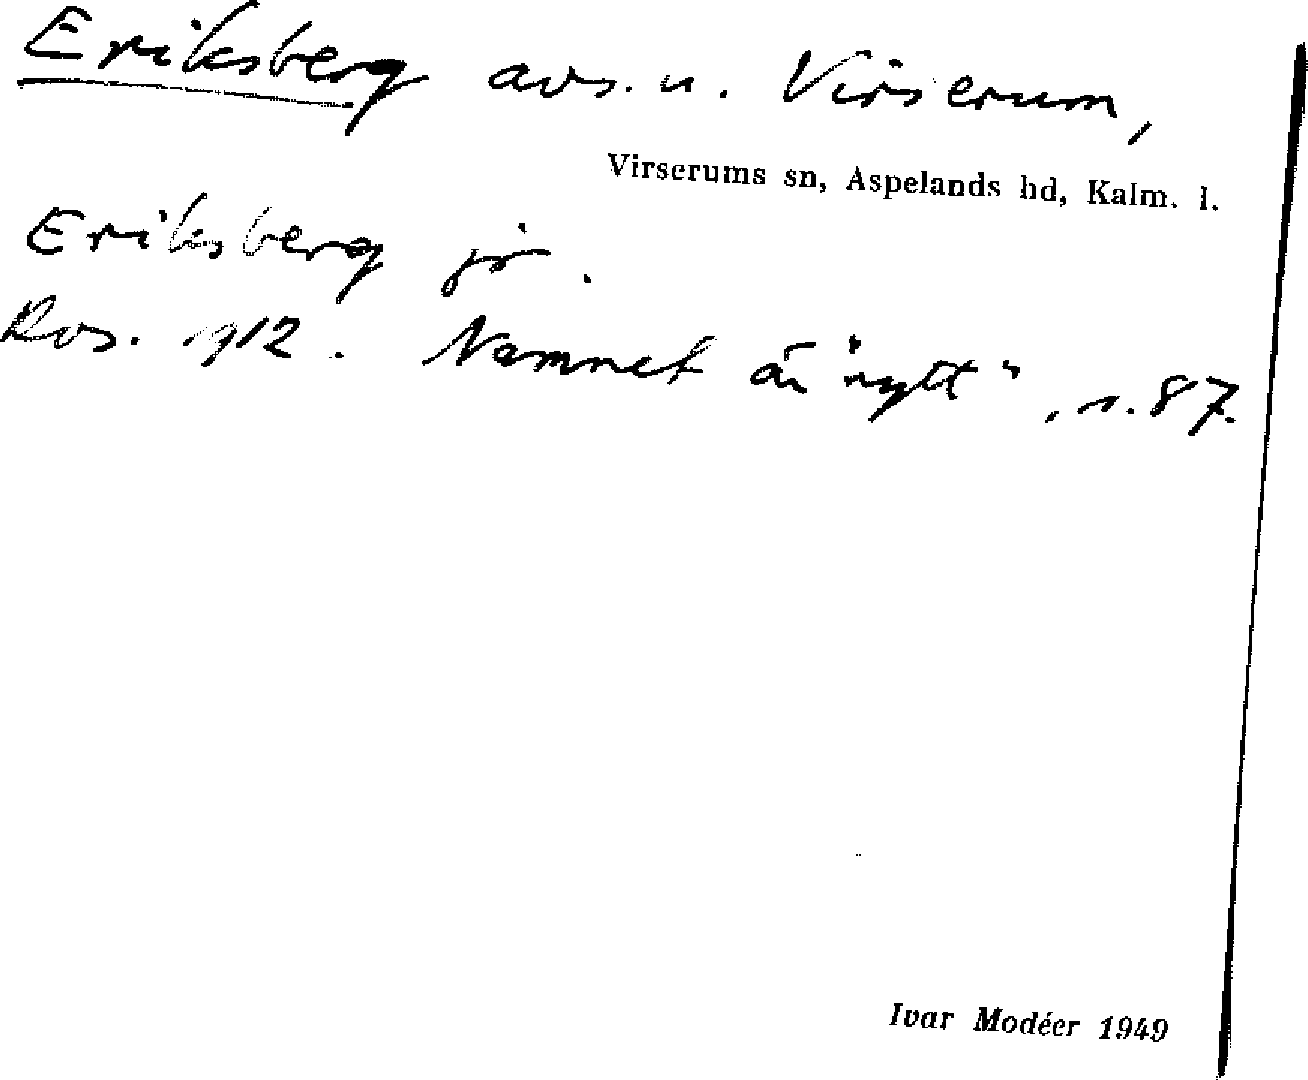 Eriksberg avs. u. Virserum,
Virserums sn, Aspelands hd, Kalm. l.
Eriksberg jr.
Ros. 1912. Namnet är "nytt", s. 87.
Ivar Modéer 1949